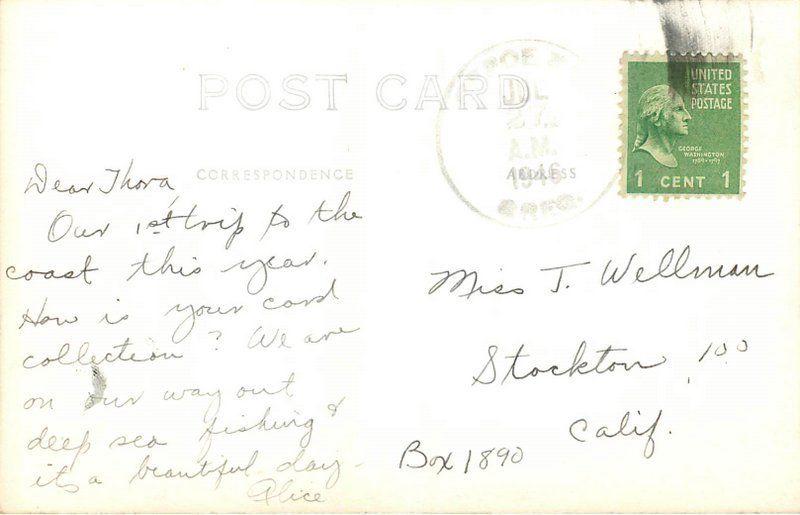 POST CARD
CORRESPONDENCE
ADDRESS
A.M.
1946
OREG.
UNITED
STATES
POSTAGE
GEORGE
WASHINGTON
1789-1797
1 CENT 1
Dear Thora,
Our 1st trip to the
coast this year.
How is your card
collection? We are
on our way out
deep sea fishing &
its a beautiful day-
Alice
Miss T. Wellman
Stockton, 100
Calif.
Box 1890